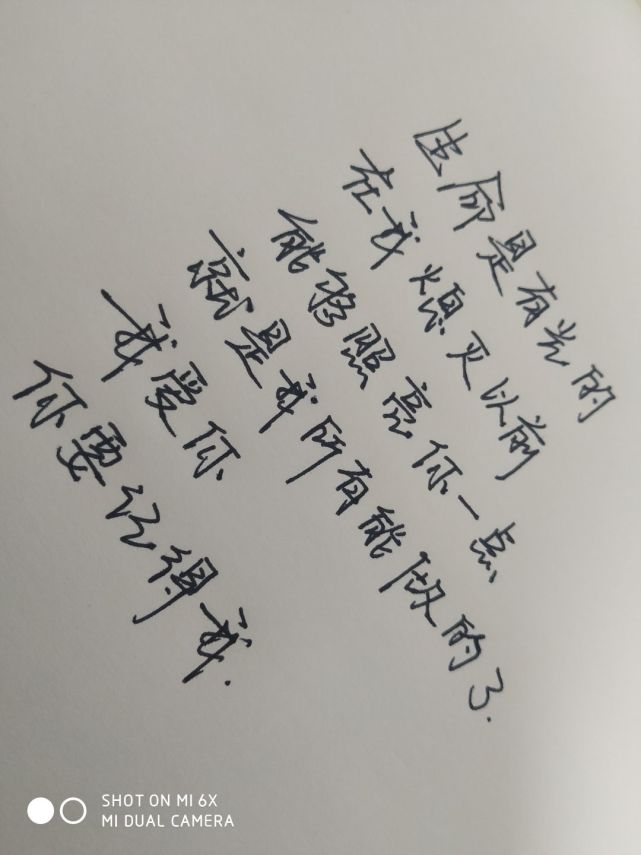 生命是有光的
在我熄灭以前
能够照亮你一点
就是我所有能做的了.
我爱你
你要记得我.
SHOT ON MI 6X
MI DUAL CAMERA